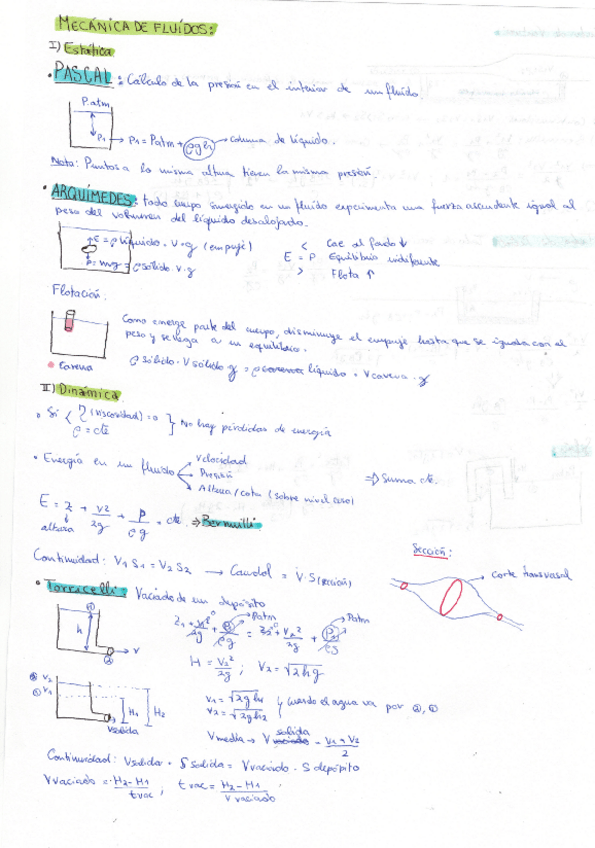 MECÁNICA DE FLUÍDOS:
I) Estática
• PASCAL: Cálculo de la presión en el interior de un fluído.
P.atm
P1 → P1 = Patm + ρgh → columna de líquido.
Nota: Puntos a la misma altura tienen la misma presión.
• ARQUÍMEDES: todo cuerpo sumergido en un fluído experimenta una fuerza ascendente igual al
peso del volumen del líquido desalojado.
E = ρ líquido · V · g (empuje)
P = mg = ρ sólido · V · g
< Cae al fondo ↓
E = P Equilibrio indiferente
> Flota ↑
Flotación.
Como emerge parte del cuerpo, disminuye el empuje hasta que se iguala con el
peso y se llega a un equilibrio.
ρ sólido · V sólido g = ρ líquido · V carena · g
• carena
II) Dinámica
• Si { η (viscosidad) = 0
ρ = cte } No hay pérdidas de energía
• Energía en un fluído
Velocidad
Presión
Altura / cota (sobre nivel cero)
⇒ Suma cte.
E = z + v²/2g + P/ρg = cte. ⇒ Bernuilli
altura
Continuidad: V1 S1 = V2 S2 → Caudal = V · S (sección)
Sección:
corte transversal
• Torricelli: Vaciado de un depósito
① h ② v
z1 + v1²/2g + P/ρg = z2 + v2²/2g + P/ρg
0 Patm 0 Patm
H = v2²/2g ; V2 = √2hg
② V2
① V1
H1 H2
Vsalida
V1 = √2gh1
V2 = √2gh2
} cuando el agua va por ②, ①
Vmedia → V salida = V1 + V2 / 2
Continuidad: Vsalida · S salida = Vvaciado · S depósito
Vvaciado = H2 - H1 / tvac ; tvac = H2 - H1 / V vaciado